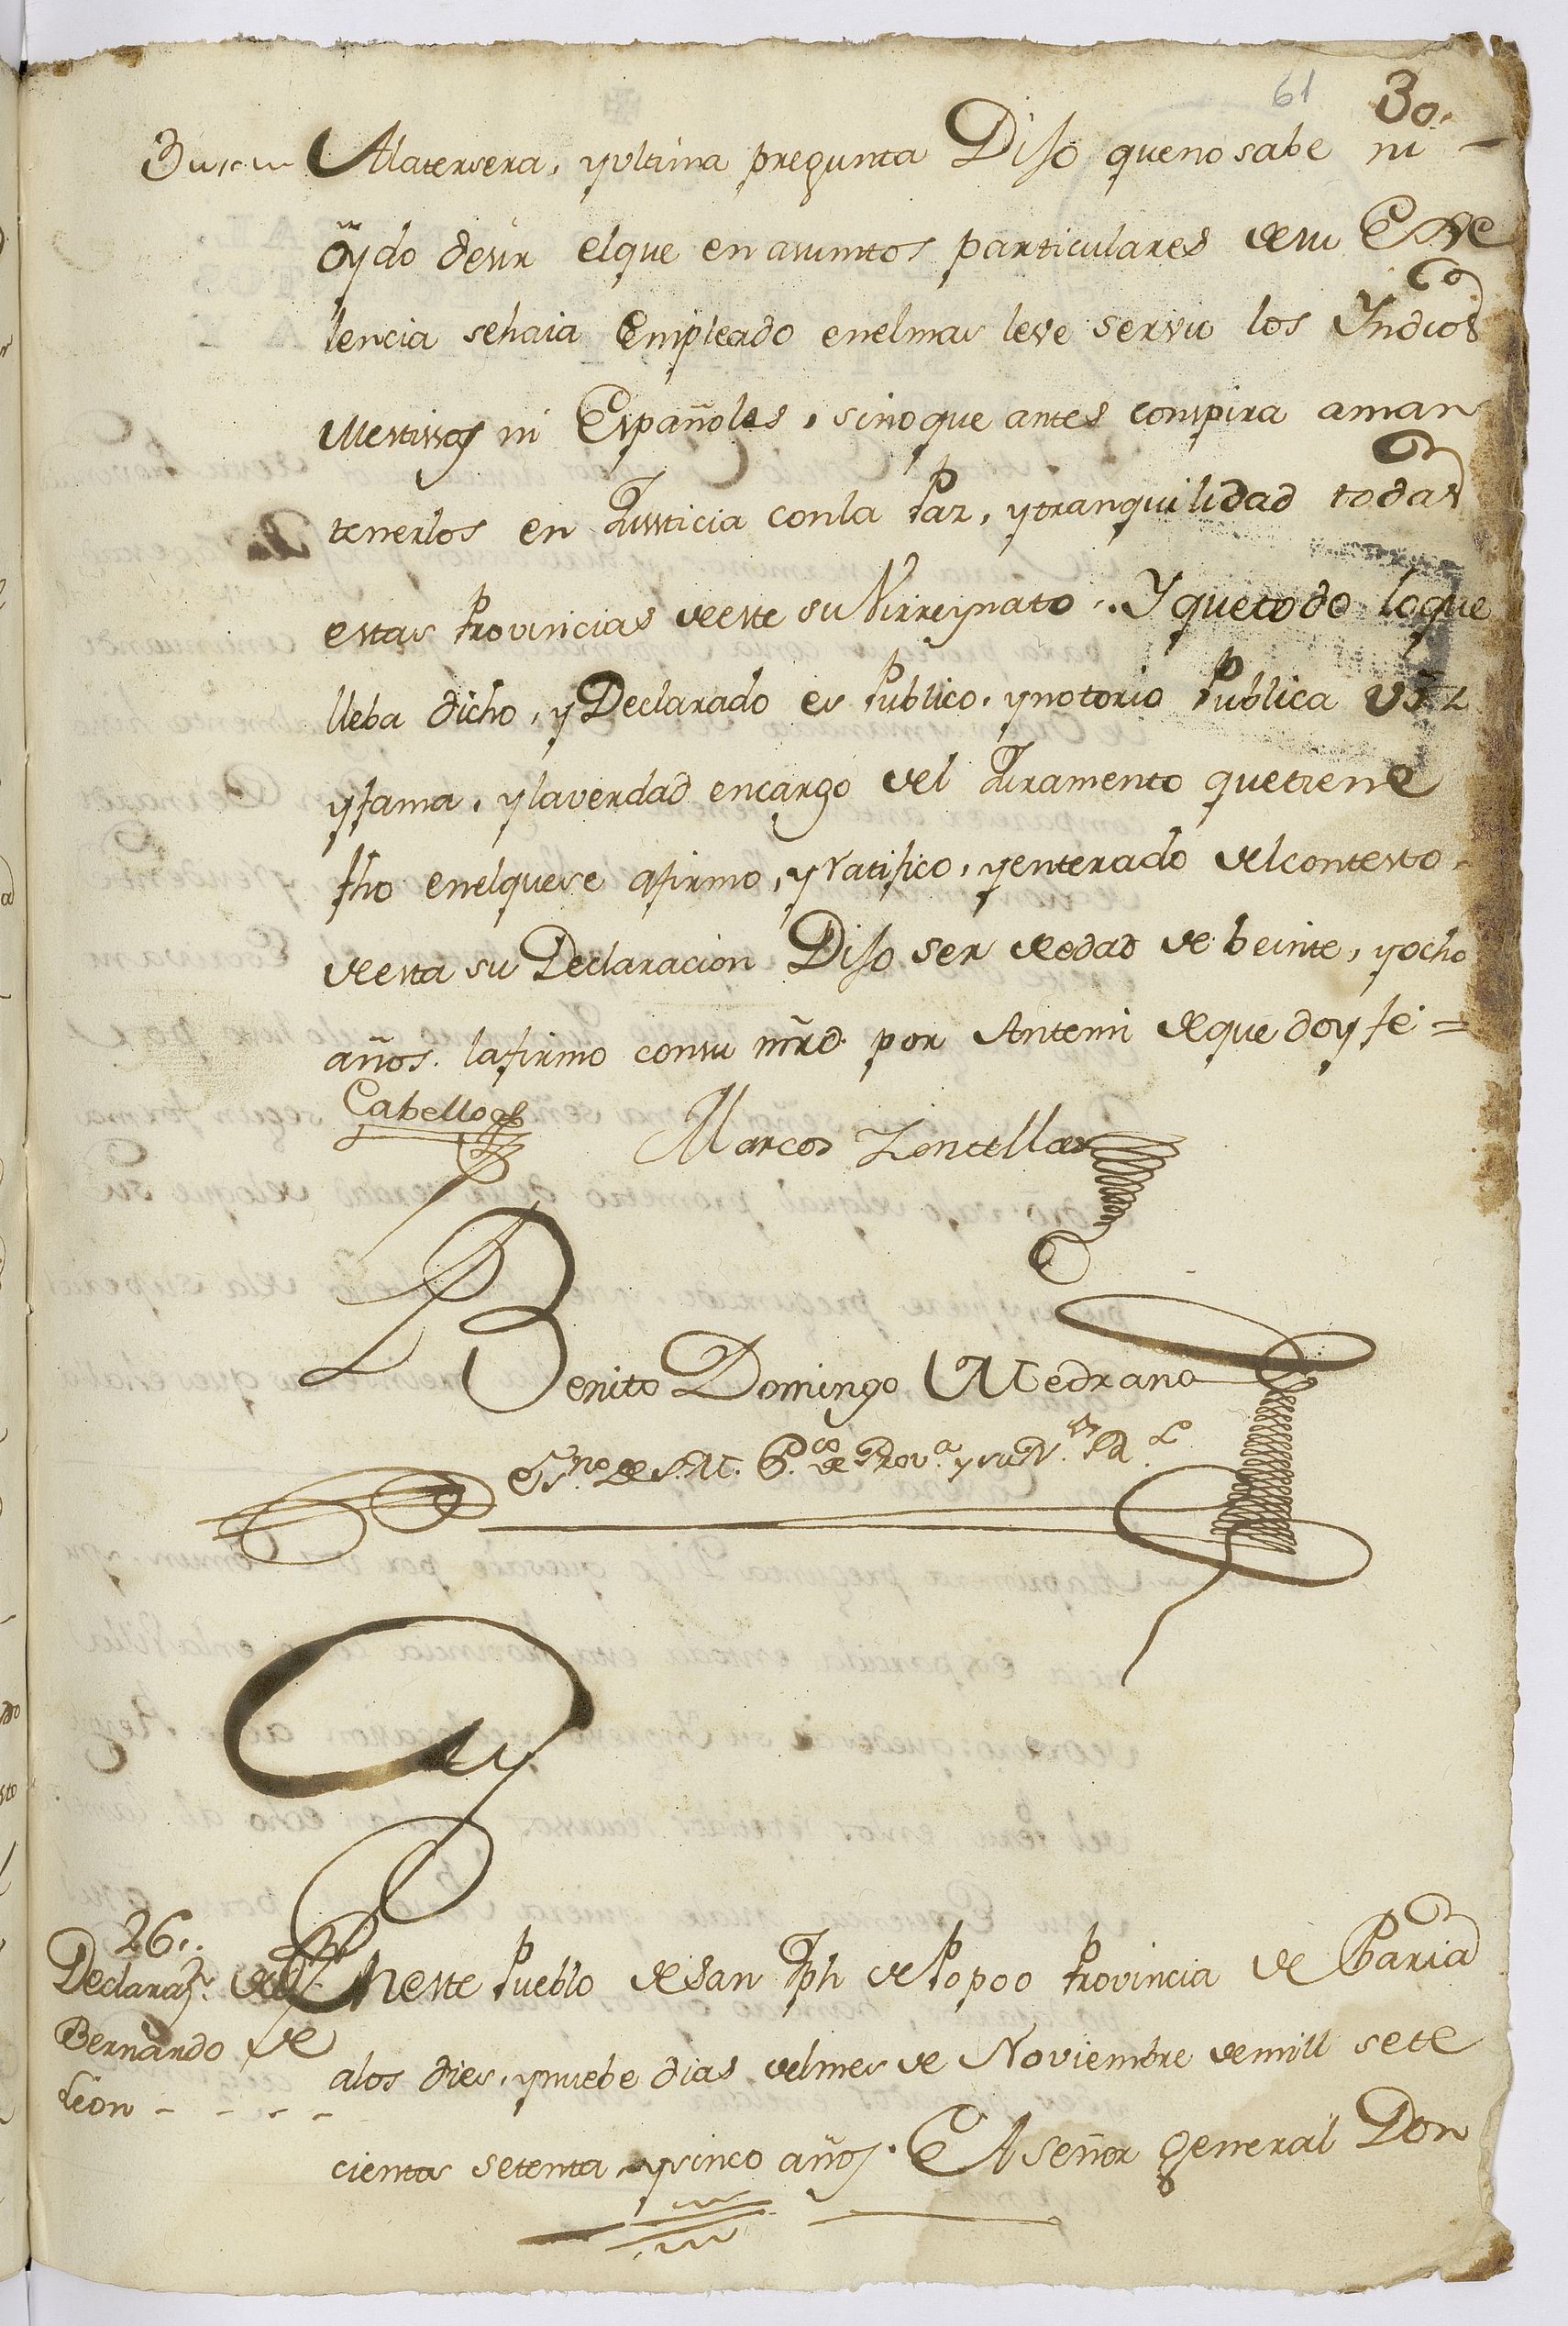 61 30.
Alatersera, yultima pregunta Dijo quenosabe ni -
oydo desir elque en asumtos particulares desu Exse
lencia sehaia Empleado enelmas leve servio los Yndios
Mestissos ni Españoles, sinoque antes conspira aman
tenerlos en Jussticia conla Paz, ytranquilidad todas
estas Provincias deeste su Virreynato. Y quetodo loque
lleba dicho, y Declarado es Publico, ynotorio Publica voz
yfama, ylaverdad encargo del Juramento quetiene
fho enelquese afirmo, y ratifico, yenterado delcontesto
deesta su Declaracion Dijo ser deedad de beinte, yocho
años. lafirmo consu mrd. por Antemi dequedoyfe =
Cabello
Marcos Loncellas
Benito Domingo Medrano
Es.no de S.M. P.co de Prov.a y su
26..
Declaraz.n de
Bernardo de
Leon - - - -
Eneste Pueblo deSan Jph dePopoo Provincia de Paria
alos dies, ynuebe dias delmes de Noviembre demill sete
cientos setenta, ysinco años. El Señor General Don